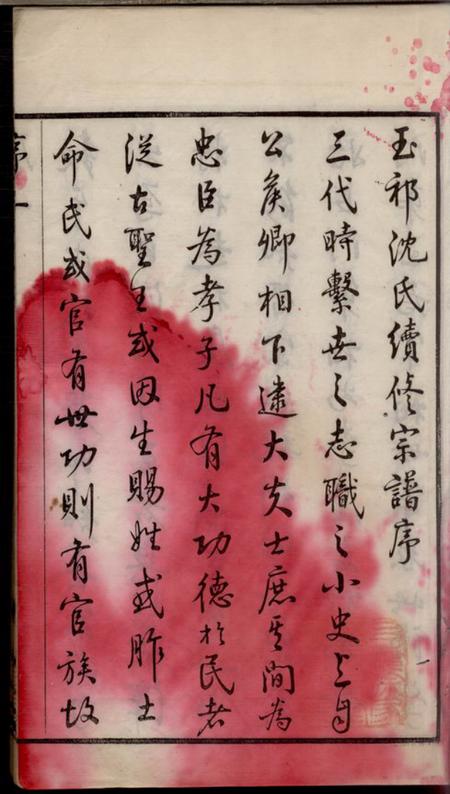 玉祁沈氏續修宗譜序
三代時繫世之志職之小史上自
公侯卿相下逮大夫士庶其間為
忠臣為孝子凡有大功德於民者
從古聖王或因生賜姓或胙土
命氏或官有世功則有官族故
序 一